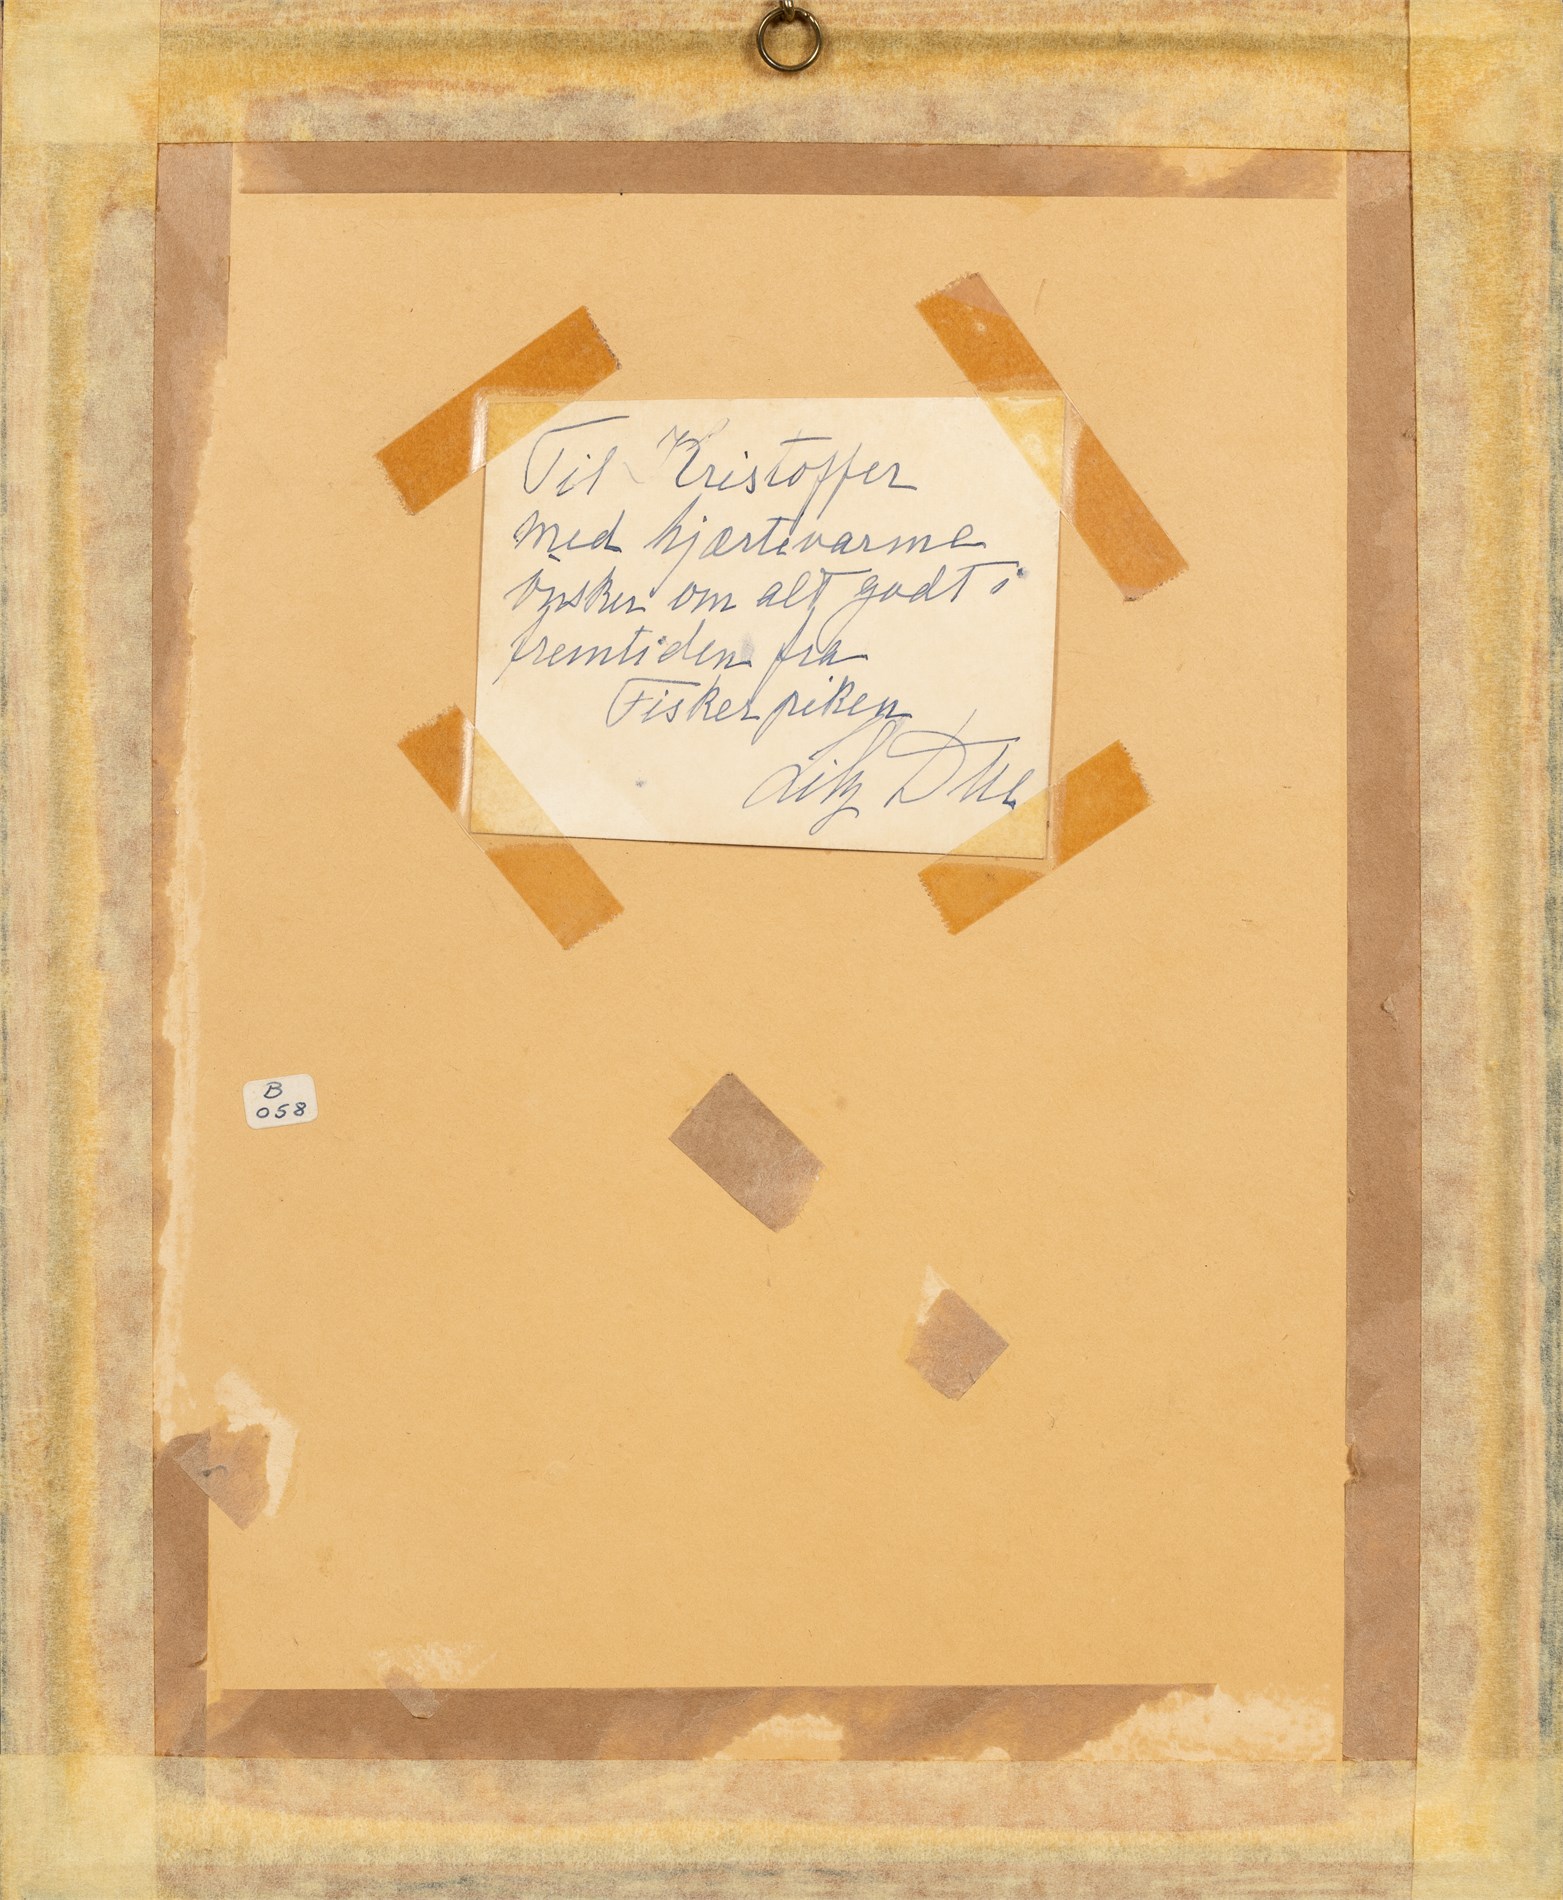 Til Kristoffer
med hjærtevarme
ønsker om alt godt i
fremtiden fra
Fisker piken
B
058